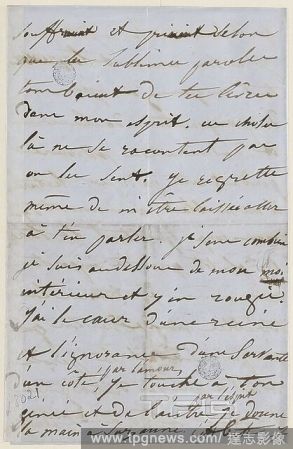 souffrant et priait de ton
que les sublimes paroles
tombaient de tes lèvres
dans mon esprit. ces choses
là ne se racontent pas
on les sent. je regrette
même de m'être laissée aller
à t'en parler. je sens combien
je suis au dessous de mon moi
intérieur et j'en rougis
j'ai le cœur d'une reine
et l'ignorance d'une servante
d'un côté, par l'amour, je touche à ton
génie et de l'autre par l'esprit je donne
la main à Suzanne
8021
www.tpgnews.com 達志影像